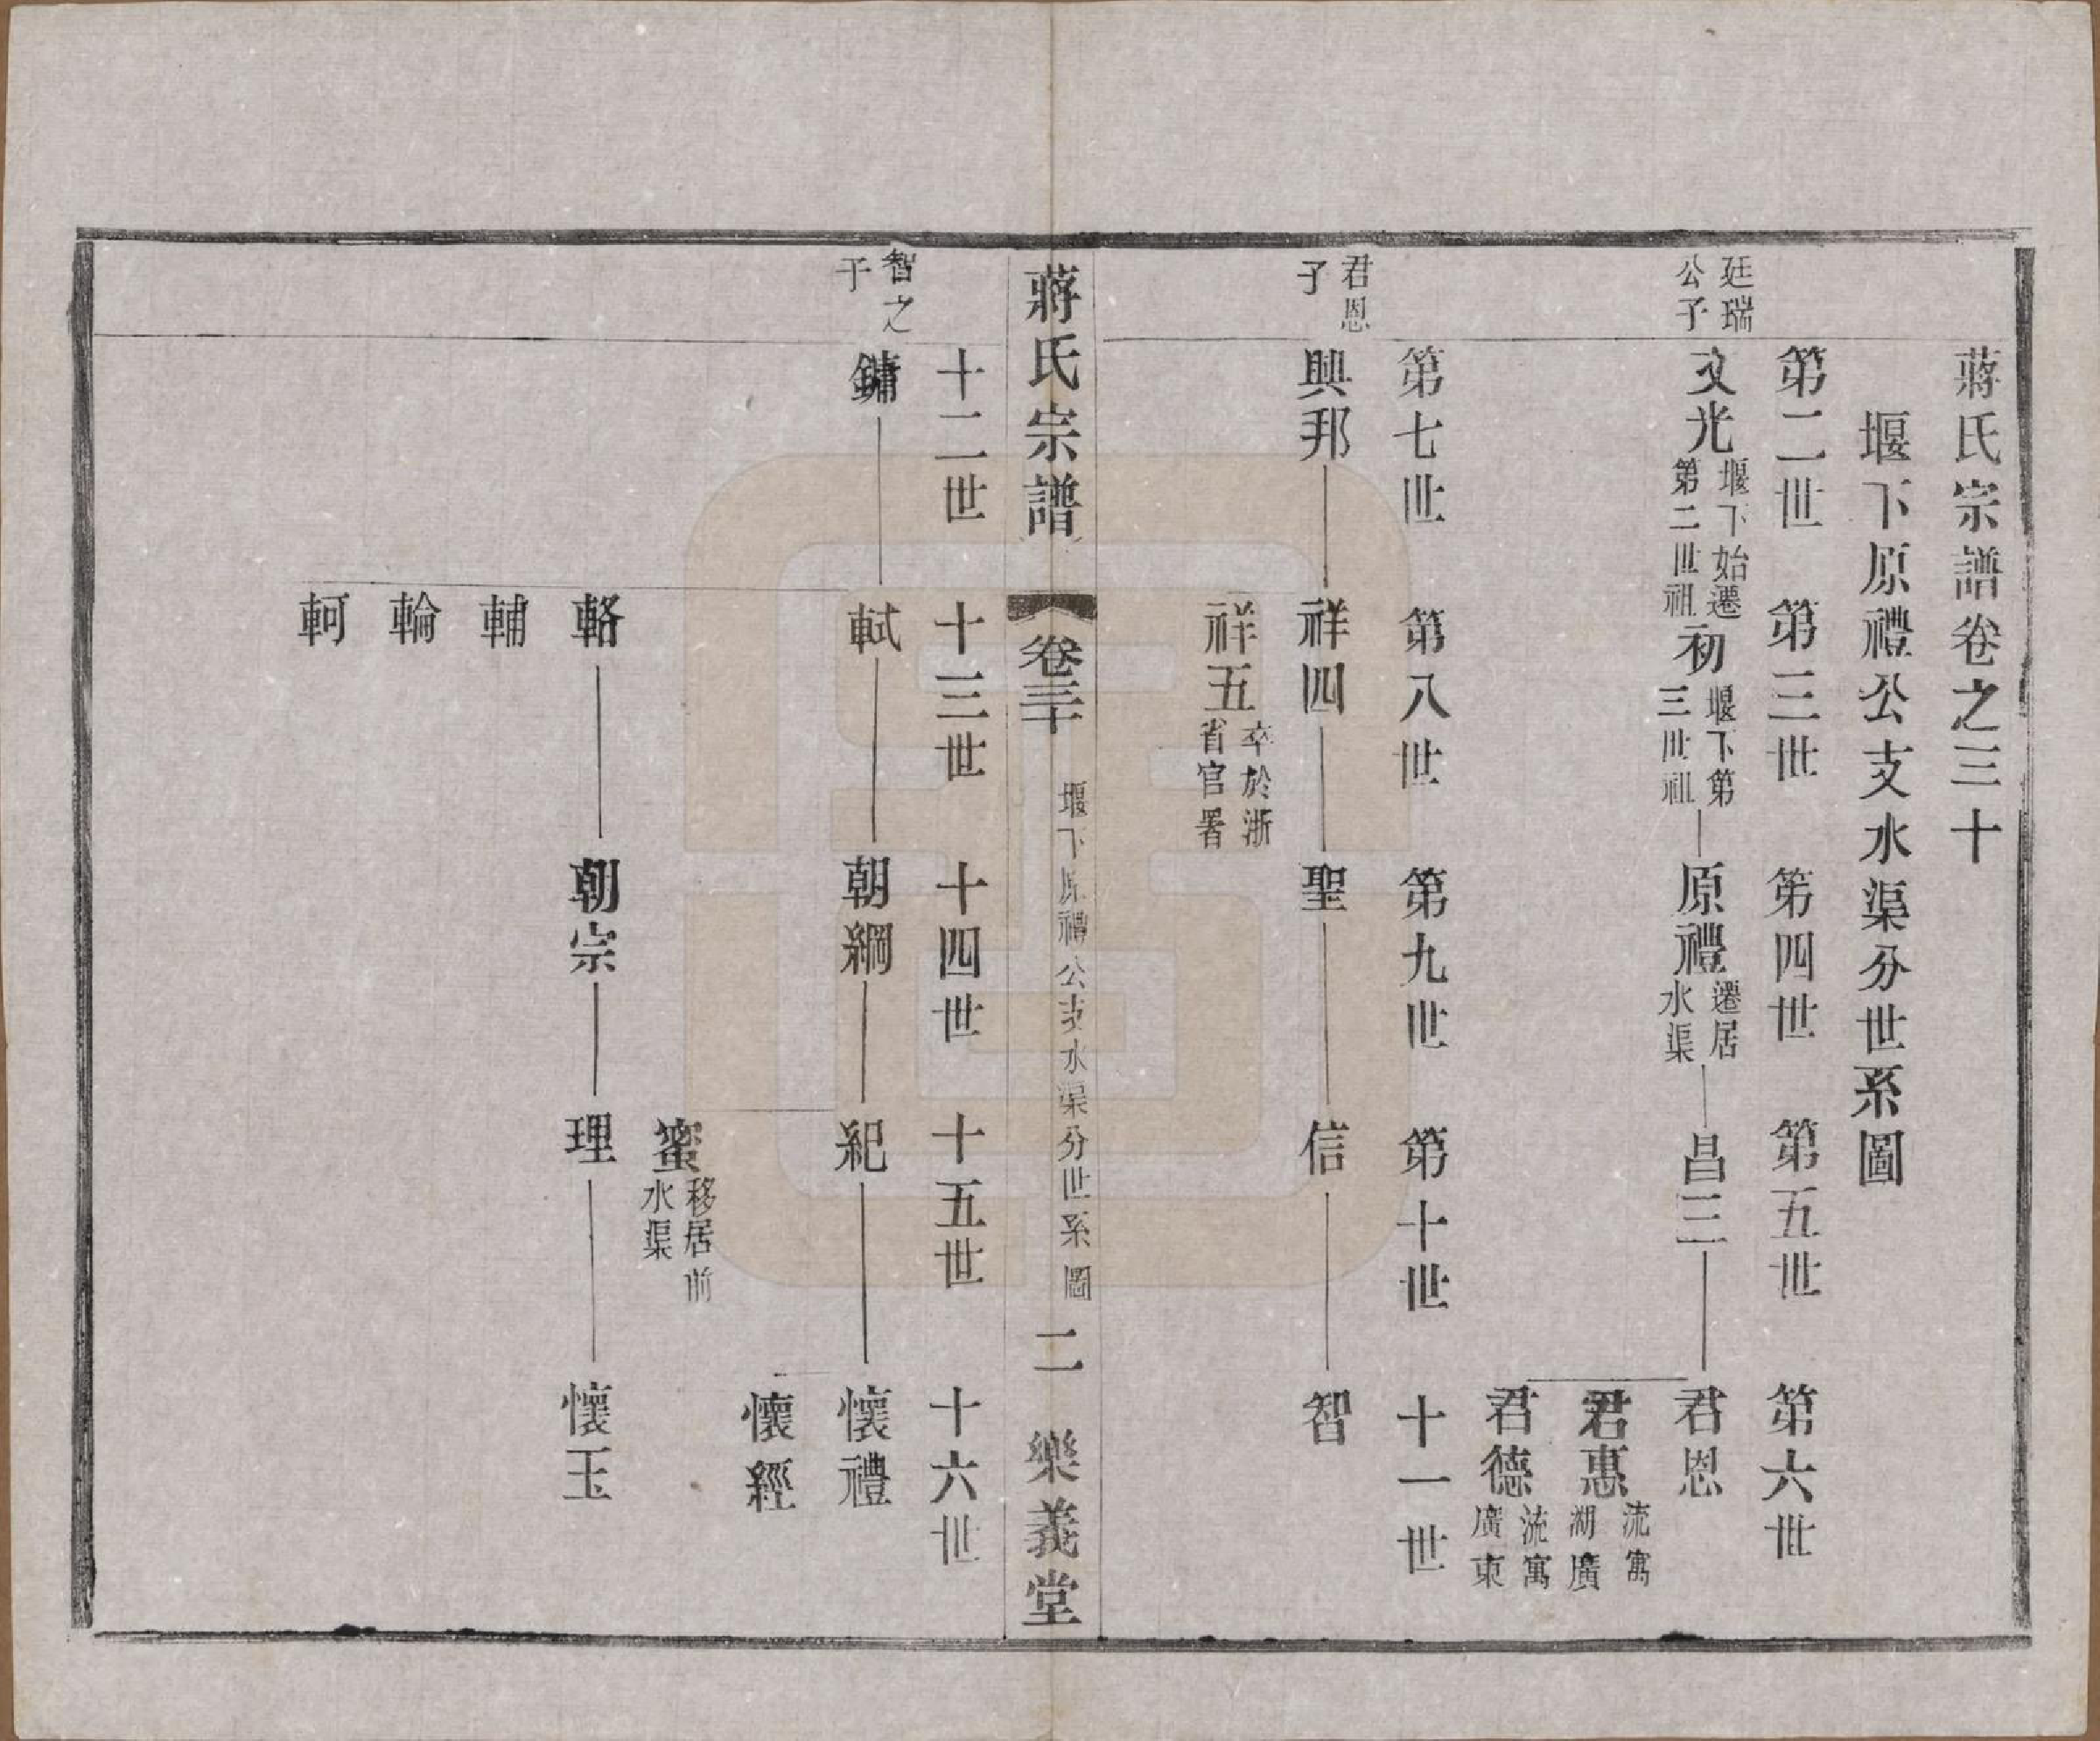 蔣氏宗譜卷之三十
堰下原禮公支水渠分世系圖
第二世　第三世　第四世　第五世　第六世
廷瑞公子
文光　堰下始遷第二世祖　初　堰下第三世祖　原禮　遷居水渠　昌三　君恩
君惠　流寓湖廣
君德　流寓廣東
第七世　第八世　第九世　第十世　十一世
君恩子
興邦　祥四　聖　信　智
祥五　卒於浙省官署
蔣氏宗譜　卷三十　堰下原禮公支水渠分世系圖　二　樂義堂
十二世　十三世　十四世　十五世　十六世
智之子
鏞　軾　朝綱　紀　懷禮
懷經
蜜　移居前水渠
輅　朝宗　理　懷玉
輔
輪
軻